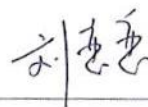 刘恋恋